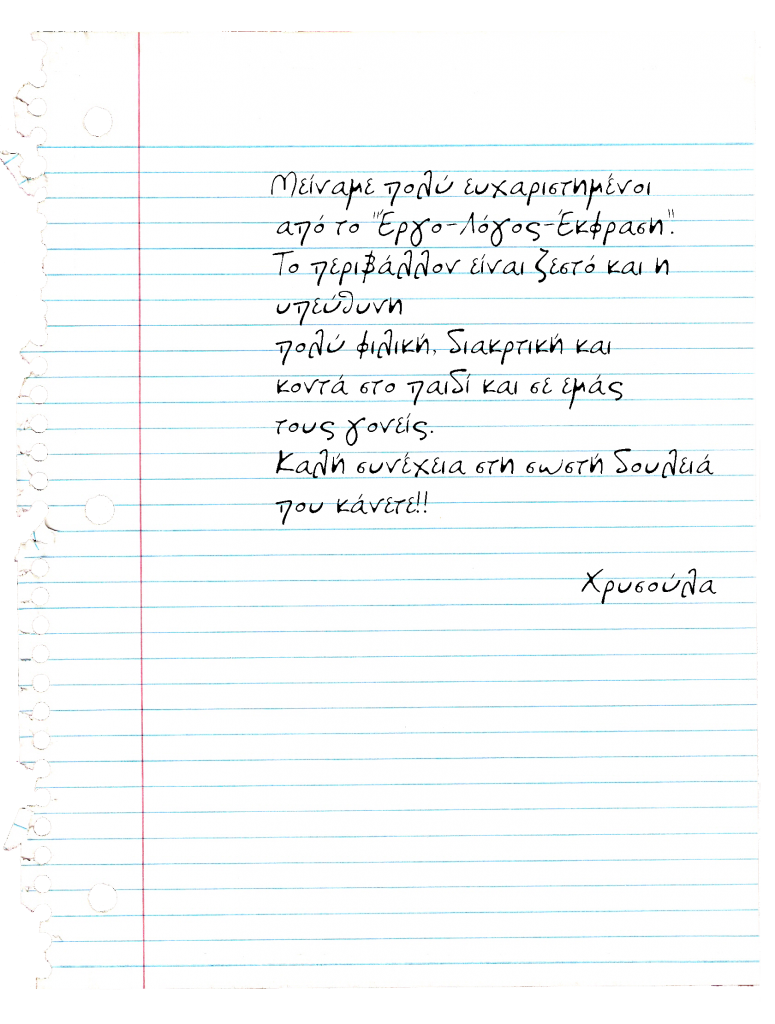 Μείναμε πολύ ευχαριστημένοι
από το "Έργο-Λόγος-Έκφραση".
Το περιβάλλον είναι ζεστό και η
υπεύθυνη
πολύ φιλική, διακρτική και
κοντά στο παιδί και σε εμάς
τους γονείς.
Καλή συνέχεια στη σωστή δουλειά
που κάνετε!!
Χρυσούλα